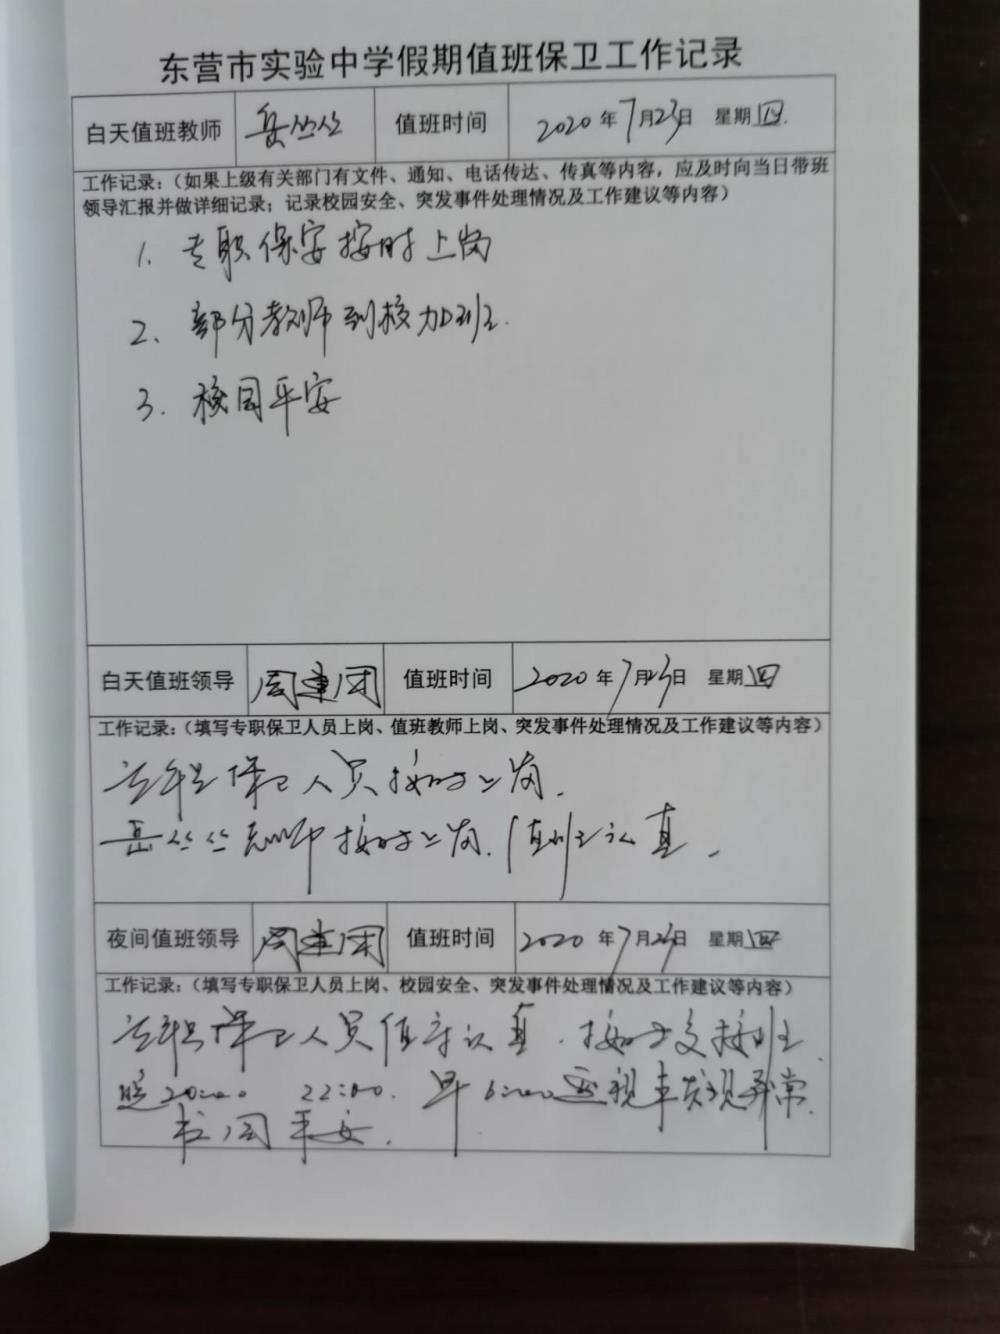 东营市实验中学假期值班保卫工作记录
白天值班教师 岳丛丛 值班时间 2020年7月23日 星期四.
工作记录：（如果上级有关部门有文件、通知、电话传达、传真等内容，应及时向当日带班
领导汇报并做详细记录；记录校园安全、突发事件处理情况及工作建议等内容）
1. 专职保安按时上岗
2. 部分教师到校加班.
3. 校园平安
白天值班领导 周建团 值班时间 2020年7月23日 星期四
工作记录：（填写专职保卫人员上岗、值班教师上岗、突发事件处理情况及工作建议等内容）
专职保卫人员按时上岗.
岳丛丛老师按时上岗.值班认真.
夜间值班领导 周建团 值班时间 2020年7月23日 星期四
工作记录：（填写专职保卫人员上岗、校园安全、突发事件处理情况及工作建议等内容）
专职保卫人员值守认真.按时交接班.
晚20:00 22:00.早6:00巡视未发现异常.
校园平安.